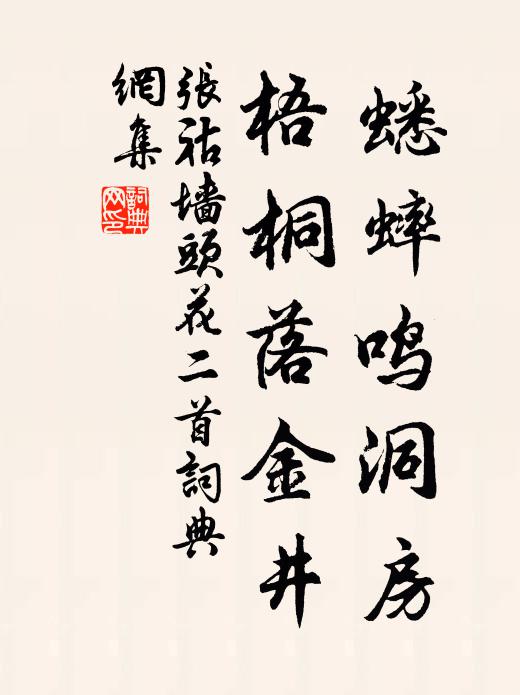 蟋蟀鸣洞房
梧桐落金井
張祜墻頭花二首詞典
網集
詞典
网印